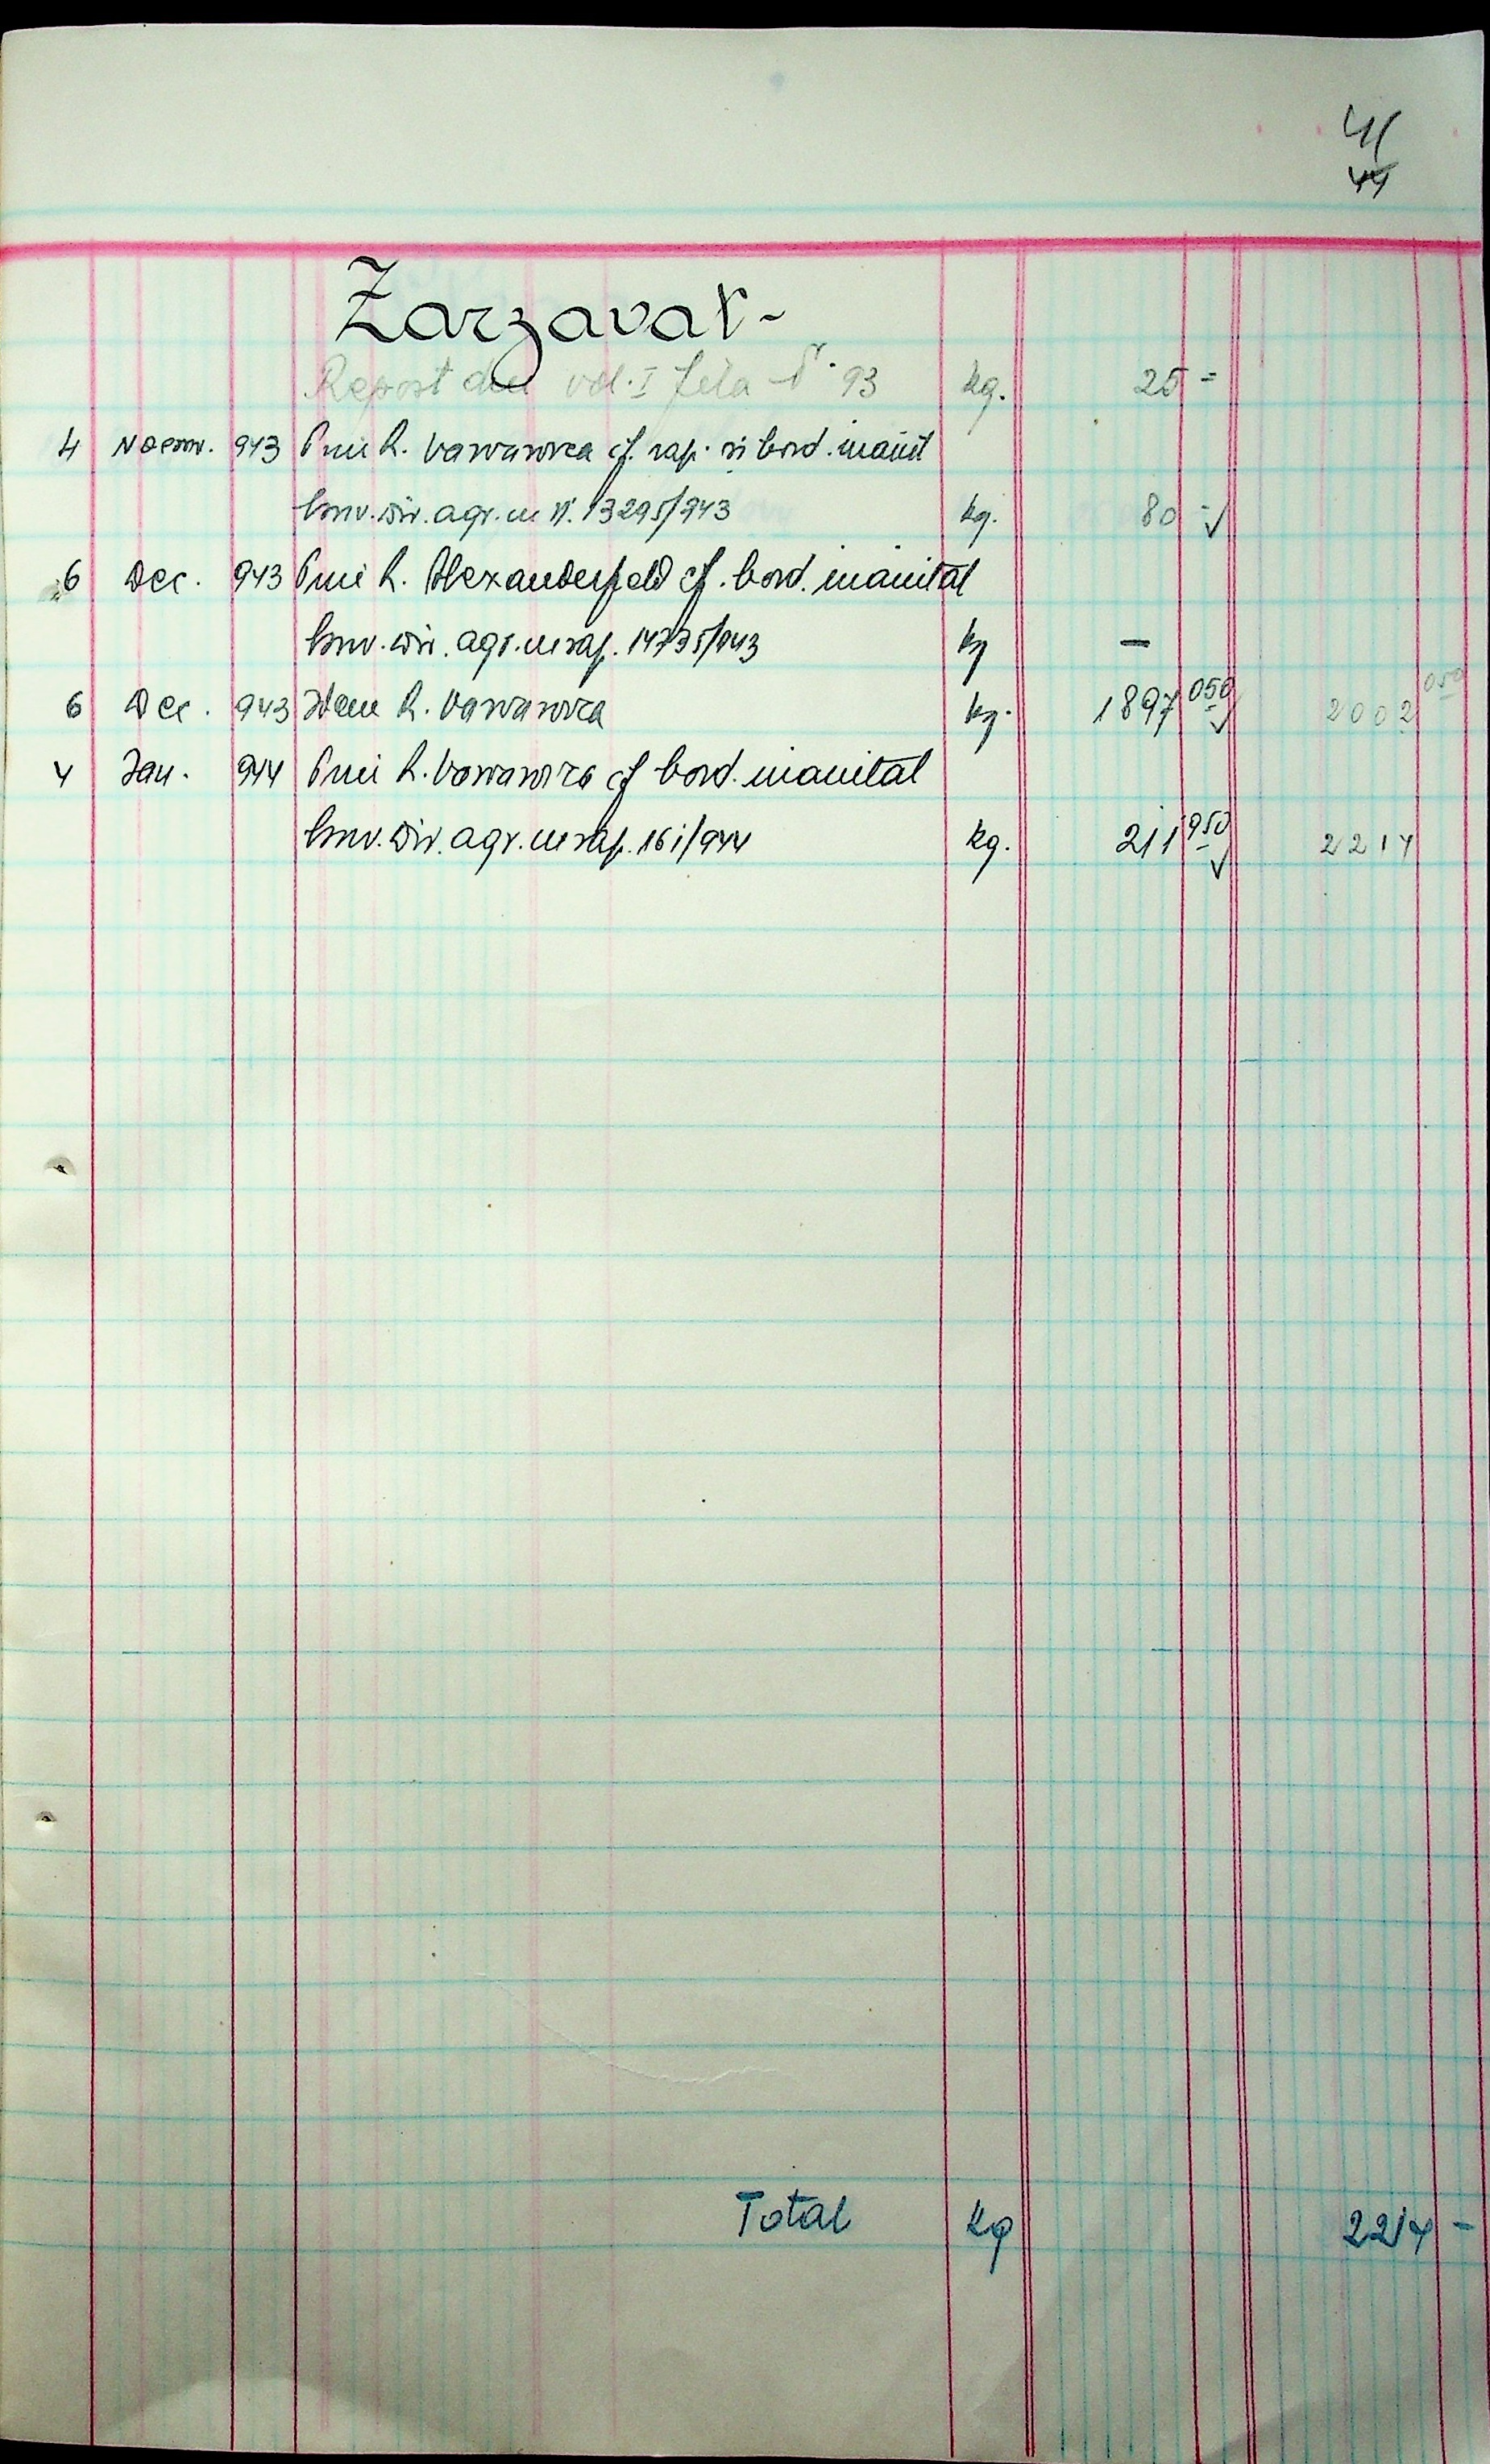 41
44
Zarzavat-
Report din vol. I fila N° 93 kg. 25 =
4 Noemv. 943 Prin R. Varvarovca cf. rap. si bord. inaint
Conv. Dir. agr. cu N. 13295/943 kg. 80 -
6 Dec. 943 Prin R. Alexanderfeld cf. bord. inaintat
Conv. Dir. agr. cu rap. 14735/943 kg —
6 Dec. 943 Idem R. Varvarovca kg. 1897 050 2002 050
4 Jan. 944 Prin R. Varvarovca cf bord. inaintat
Conv. Dir. agr. cu rap. 161/944 kg. 211 950 2214
Total Kg 2214 -